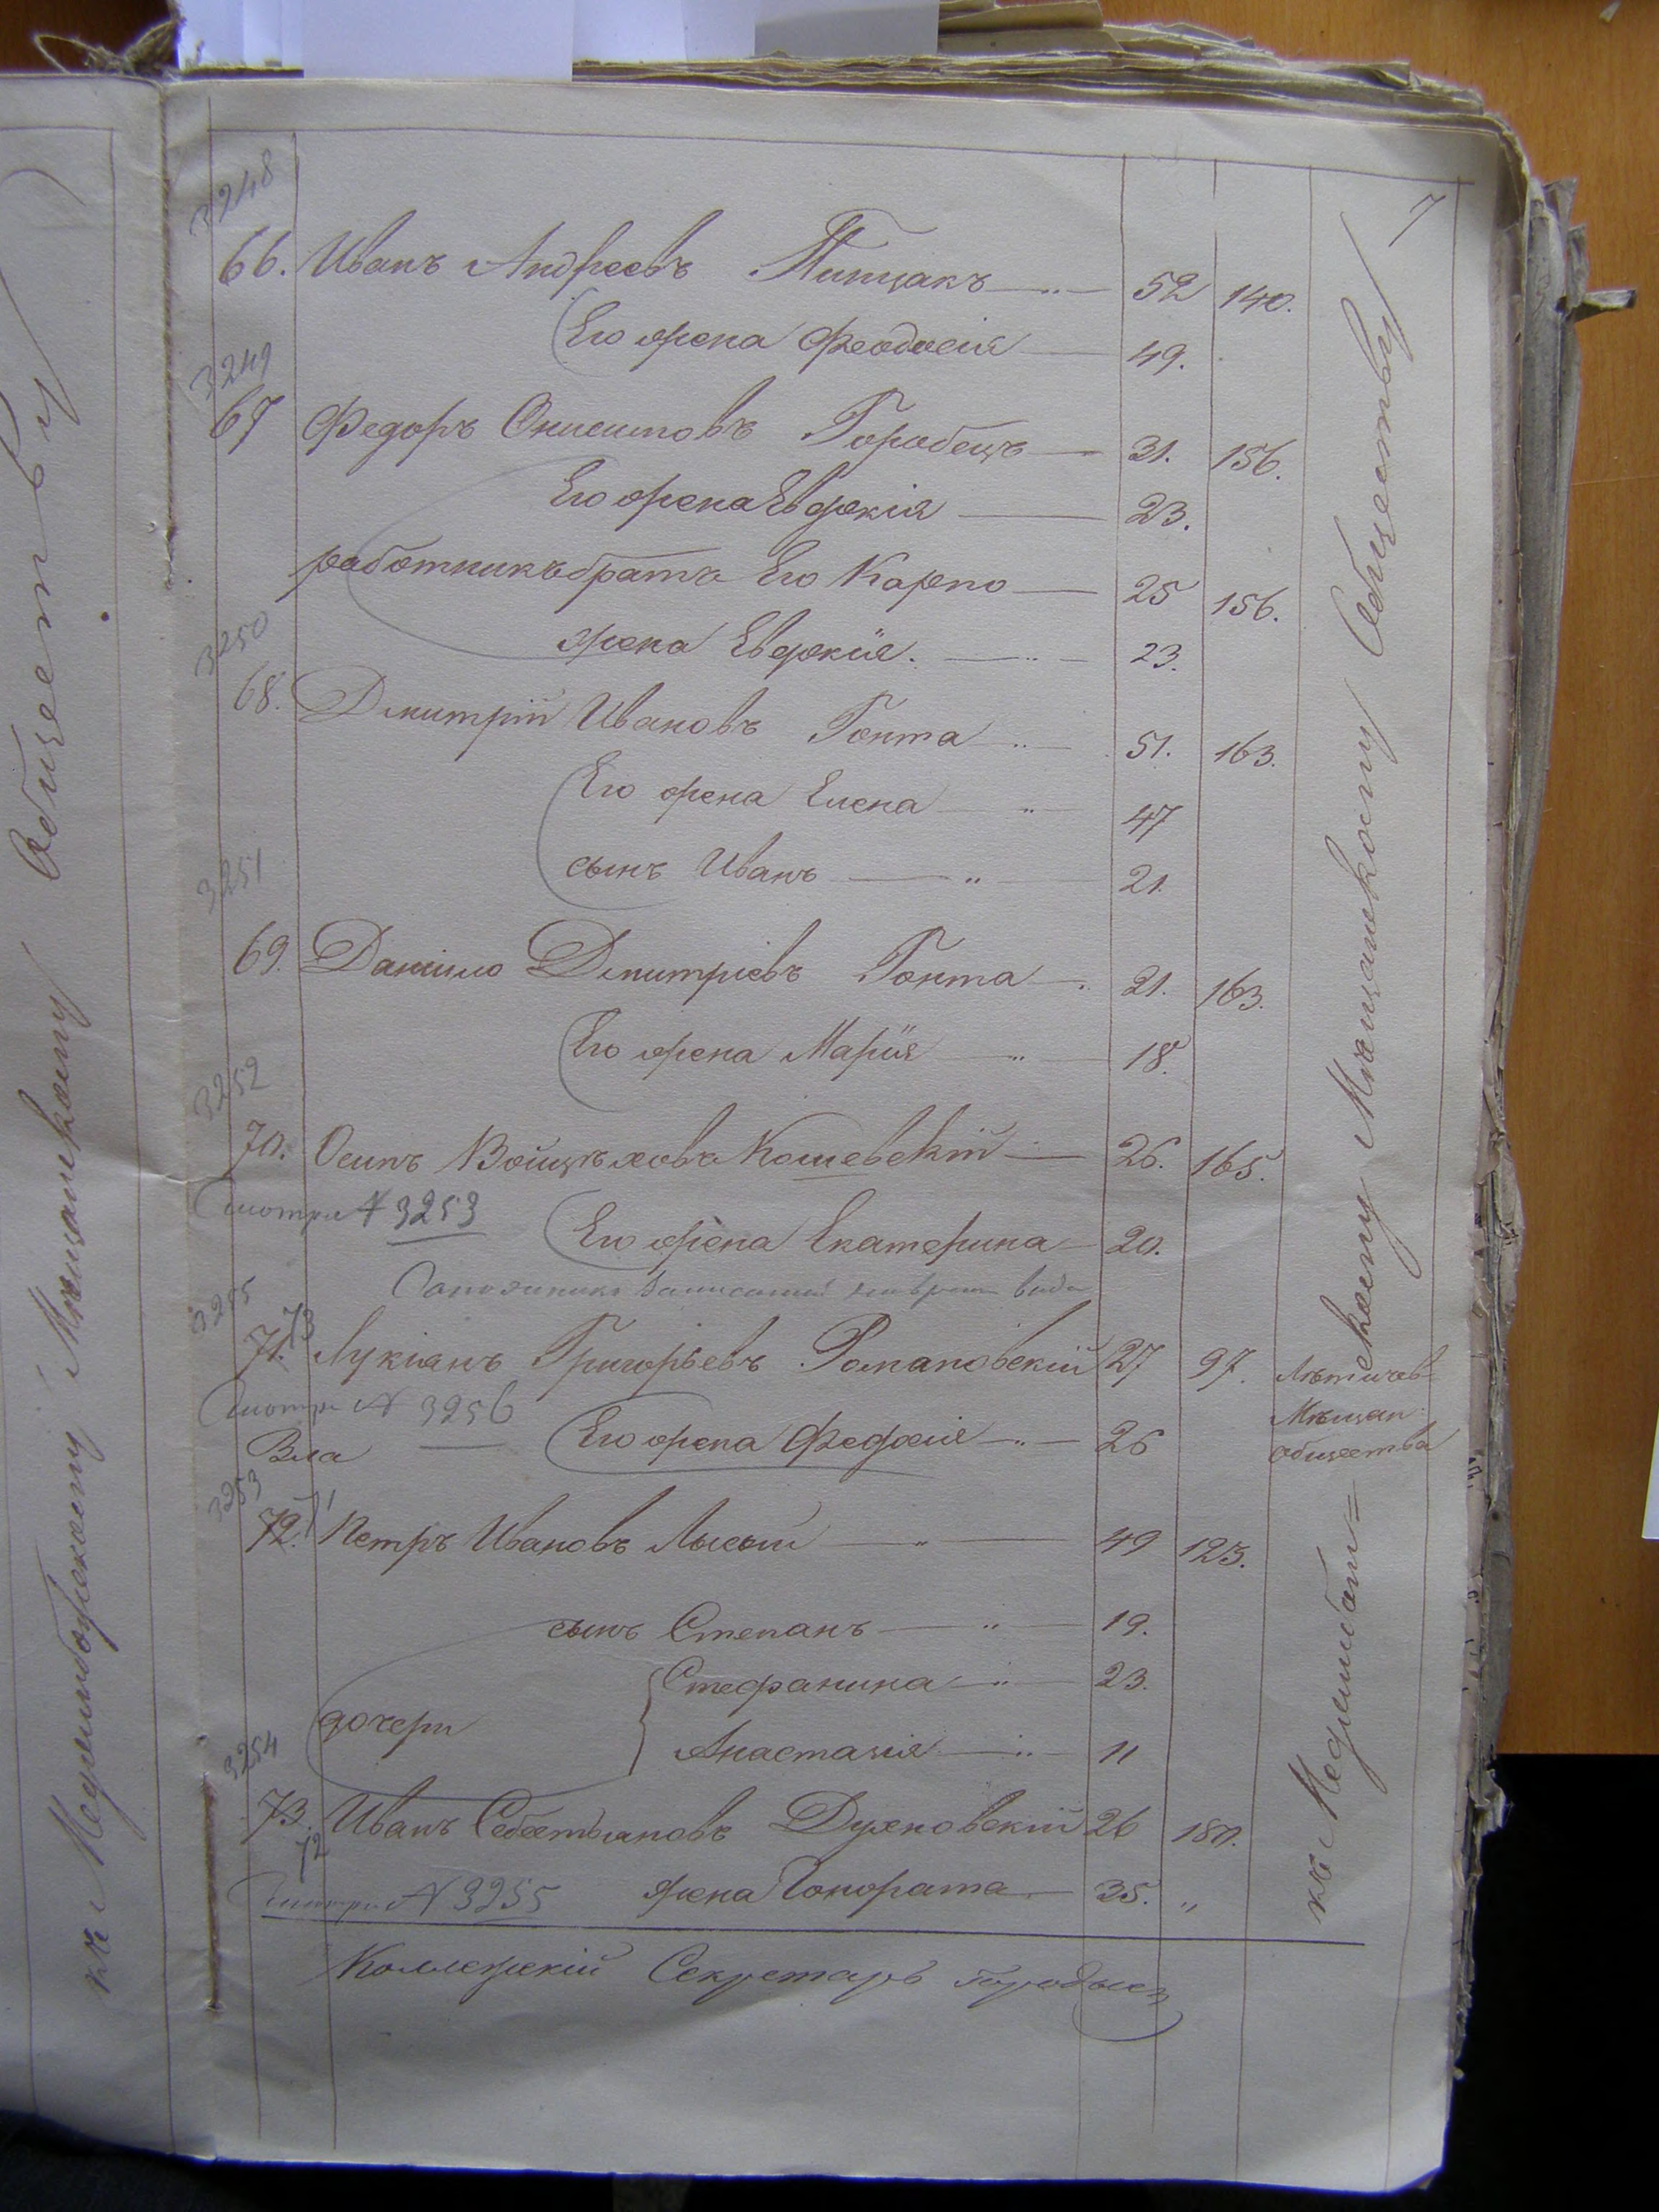 7
3248
66. Иванъ Андреевъ Пипчакъ 52 140.
Его жена Феодосія 49.
3249
67 Федоръ Онисимовъ Горобецъ 31. 156.
Его жена Евдокія 23.
работникъ братъ Его Карпо 25 156.
жена Евдокія. 23.
3250
68. Дмитрій Ивановъ Гонта 51. 163.
Его жена Елена 47
сынъ Иванъ 21.
3251
69. Данило Дмитріевъ Гонта 21. 163.
Его жена Марія 18.
3252
70. Осипъ Войцѣховъ Кошевскій 26. 165.
Смотри № 3253
Его жена Екатерина 20.
3255
73
71. Лукіянъ Григорьевъ Романовскій 27 97. Лѣтичев-
Смотри № 3256 Мѣщан.
Его жена Федосія 26 общества
Вла
3253
72. 71 Петръ Ивановъ Лысый 49 123.
сынъ Степанъ 19.
Стефанина 23.
дочери
Анастасія 11
3254
73. Иванъ Себестьяновъ Духновскій 26 180.
72
Смотри № 3255 жена Гонората 35. "
Коллежскій Секретарь
къ Меджибож=скому Мѣщанскому Обществу
къ Меджибожскому Мѣщанскому Обществу